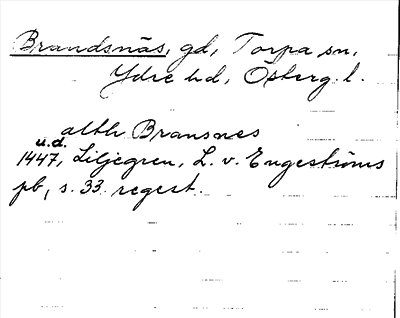 Brandsnäs, gd, Torpa sn,
Ydre hd, Österg. l.
alth Bransnes
u.d.
1447, Liljegren, L. v. Engeströms
pb, s. 33. regest.